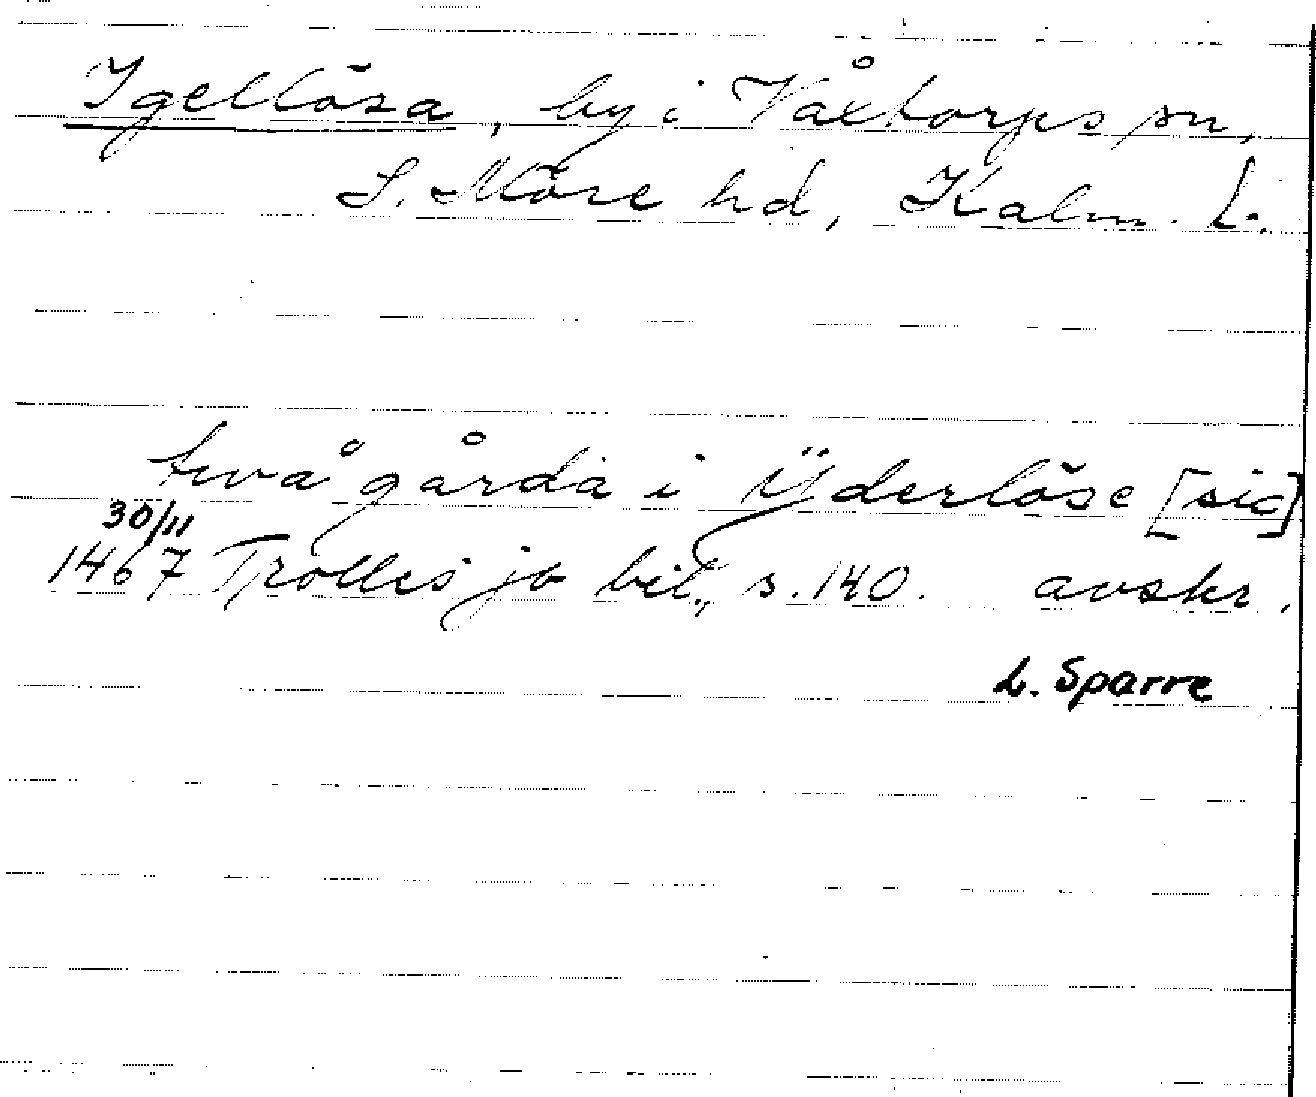 Igellösa, by i Våxtorps sn,
S. Möre hd, Kalm. L.
twå gårda i Ÿderlöse [sic]
30/11
1467 Trolles jb bil., s. 140. avskr.
L. Sparre